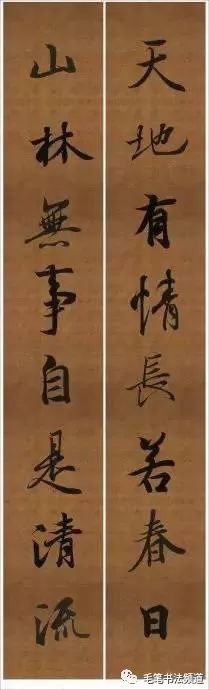 天地有情長若春日
山林無事自是清流
毛笔书法频道